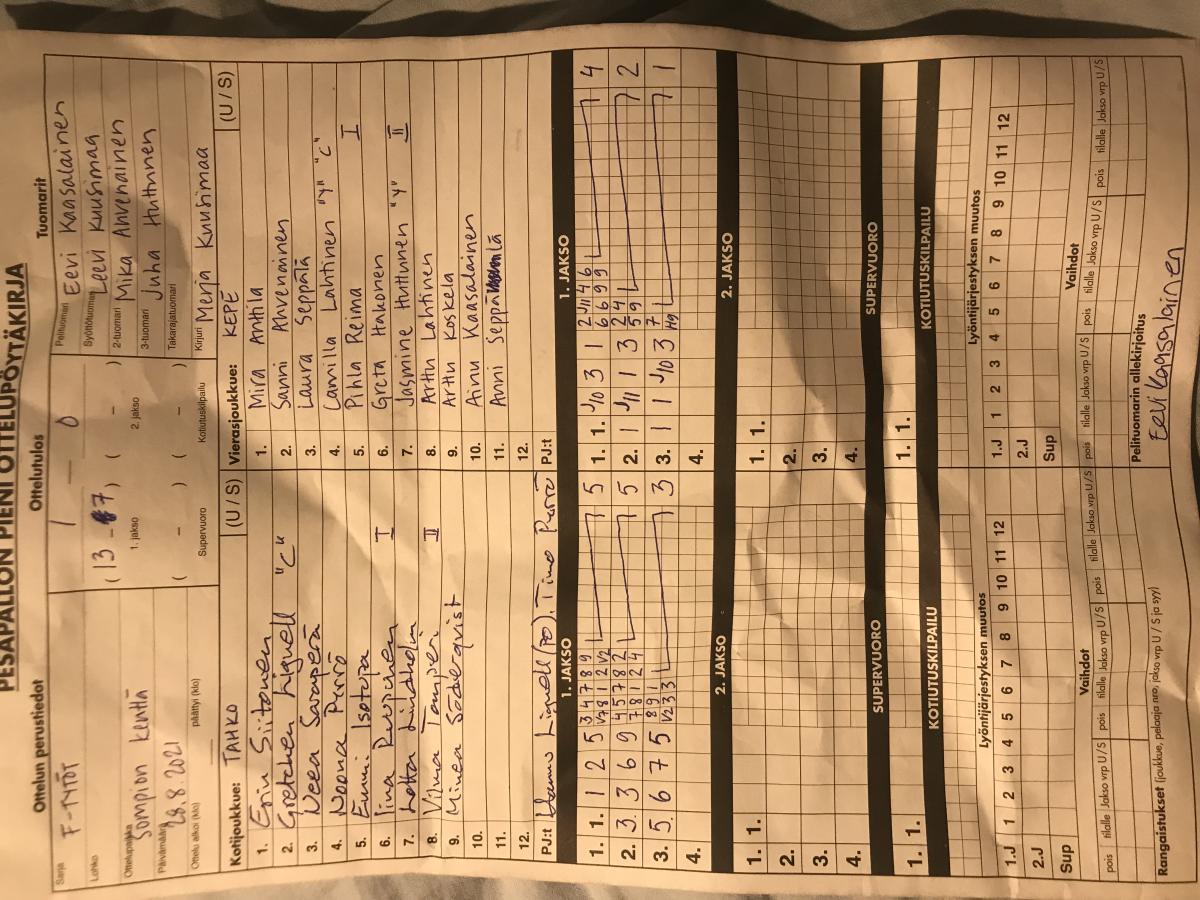 PESÄPALLON PIENI OTTELUPÖYTÄKIRJA
Ottelun perustiedot
Sarja F-TYTÖT
Lohko
Ottelupaikka Sompion kenttä
Päivämäärä 28.8.2021
Ottelu alkoi (klo) päättyi (klo)
Ottelutulos
1 — 0
( 13 - 7 ) ( - )
1. jakso 2. jakso
( - ) ( - )
Supervuoro Kotiutuskilpailu
Tuomarit
Pelituomari Eevi Kaasalainen
Syöttötuomari Leevi Kuusimaa
2-tuomari Mika Ahvenainen
3-tuomari Juha Huttunen
Takarajatuomari
Kirjuri Merja Kuusimaa
Kotijoukkue: TAHKO (U / S)
1. Erin Siitonen
2. Gretchen Lignell "C"
3. Neea Saraperä
4. Noona Pyrrö
5. Emmi Isotupa
6. Iina Rurpinen I
7. Lotta Lindholm
8. Vilma Tamperi II
9. Minea Söderqvist
10.
11.
12.
PJ:t Hannu Lignell (PO), Timo
Vierasjoukkue: KEPE (U / S)
1. Mira Anttila
2. Sanni Ahvenainen
3. Laura Seppälä
4. Camilla Lahtinen "Y" "C"
5. Pihla Reima I
6. Greta Hakonen
7. Jasmine Huttunen "Y" II
8. Arttu Lahtinen
9. Arttu Koskela
10. Ainu Kaasalainen
11. Anni Seppälä
12.
PJ:t
1. JAKSO
1. 1. 1 2 5 3 4 7 8 9 5
V7 8 1 2 V2
2. 3 3 6 9 4 5 7 8 2 5
7 8 1 2 4
3. 5 6 7 5 8 9 1 3
V2 3 3
4.
1. JAKSO
1. 1. J10 3 1 2 J11 4 6 4
6 6 9 9
2. 1 J11 1 3 2 4 2
5 9
3. 1 1 J10 3 7 1
H9
4.
2. JAKSO
1. 1.
2.
3.
4.
2. JAKSO
1. 1.
2.
3.
4.
SUPERVUORO
1. 1.
SUPERVUORO
1. 1.
KOTIUTUSKILPAILU
KOTIUTUSKILPAILU
Lyöntijärjestyksen muutos
1.J 1 2 3 4 5 6 7 8 9 10 11 12
2.J
Sup
Lyöntijärjestyksen muutos
1.J 1 2 3 4 5 6 7 8 9 10 11 12
2.J
Sup
Vaihdot
pois tilalle Jakso vrp U/S pois tilalle Jakso vrp U/S pois tilalle Jakso vrp U/S
Vaihdot
pois tilalle Jakso vrp U/S pois tilalle Jakso vrp U/S pois tilalle Jakso vrp U/S
Rangaistukset (joukkue, pelaaja nro, jakso vrp U / S ja syy)
Pelituomarin allekirjoitus
Eevi Kaasalainen